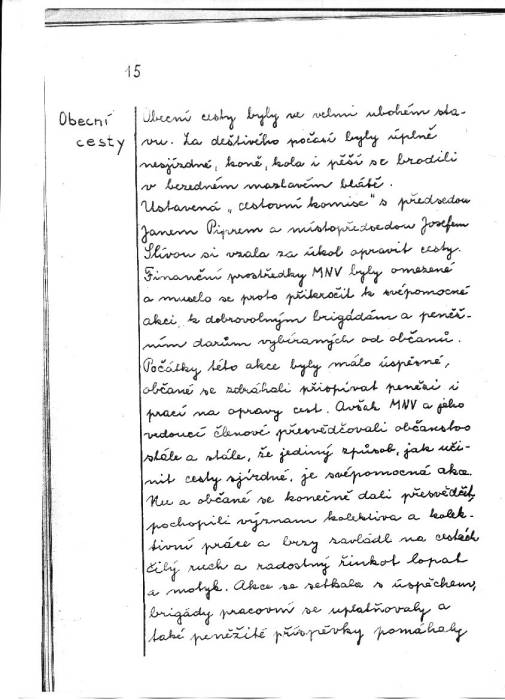 15
Obecní
cesty
Obecní cesty byly ve velmi ubohém sta-
vu. Za deštivého počasí byly úplně
nesjízdné, koně, kola i pěší se brodili
v bezedném mazlavém blátě.
Ustavená „cestovní komise" s předsedou
Janem Piprem a místopředsedou Josefem
Slívou si vzala za úkol opravit cesty.
Finanční prostředky MNV byly omezené
a muselo se proto přikročit k svépomocné
akci, k dobrovolným brigádám a peněž-
ním darům vybíraných od občanů.
Počátky této akce byly málo úspěšné,
občané se zdráhali přispívat penězi i
prací na opravy cest. Avšak MNV a jeho
vedoucí členové přesvědčovali občanstvo
stále a stále, že jediný způsob, jak uči-
nit cesty sjízdné, je svépomocná akce.
Nu a občané se konečně dali přesvědčit,
pochopili význam kolektiva a kolek-
tivní práce a brzy zavládl na cestách
čilý ruch a radostný řinkot lopat
a motyk. Akce se setkala s úspěchem,
brigády pracovní se uplatňovaly a
také peněžité příspěvky pomáhaly